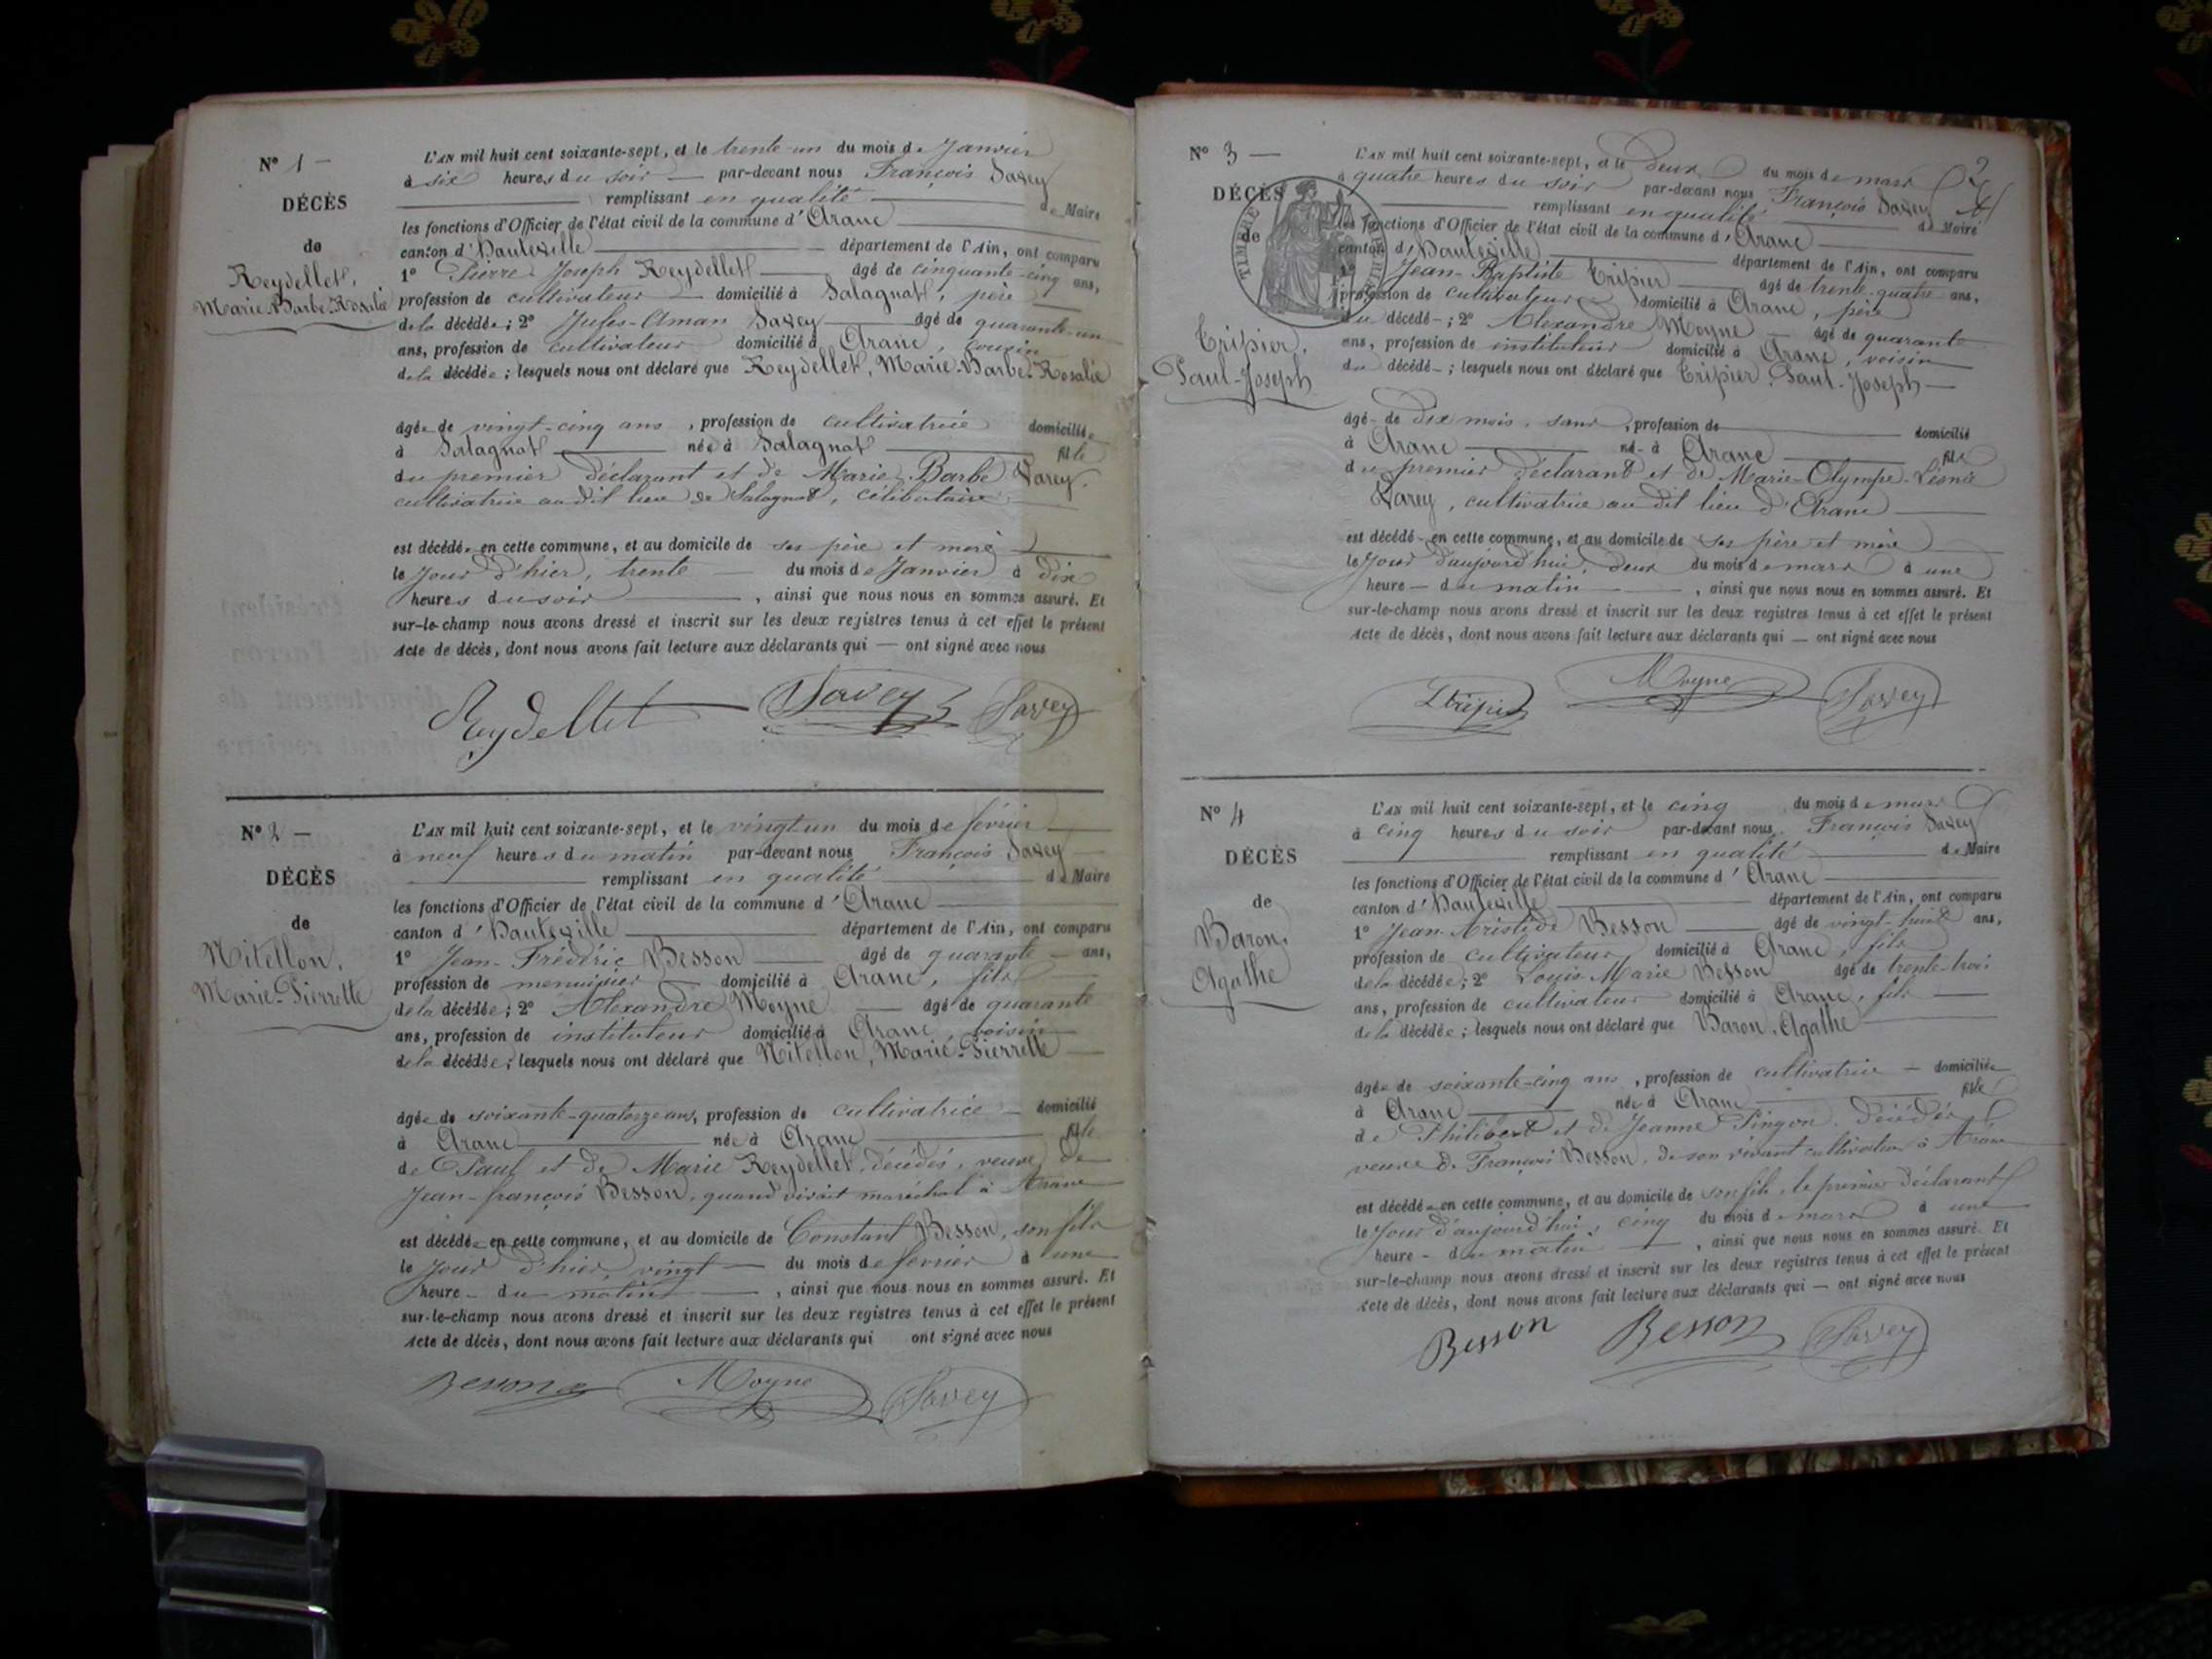 N° 1 —
DÉCÈS
de
Reydellet,
Marie-Barbe-Rosalie
L'AN mil huit cent soixante-sept, et le trente-un du mois de Janvier
à six heures du soir — par-devant nous François Savey
remplissant en qualité de Maire
les fonctions d'Officier de l'état civil de la commune d'Aranc
canton d'Hauteville — département de l'Ain, ont comparu
1° Pierre Joseph Reydellet — âgé de cinquante-cinq ans,
profession de cultivateur — domicilié à Salagnat, père
de la décédée ; 2° Jules-Aman Savey — âgé de quarante-un
ans, profession de cultivateur domicilié à Aranc, cousin
de la décédée ; lesquels nous ont déclaré que Reydellet, Marie-Barbe-Rosalie
âgée de vingt-cinq ans, profession de cultivatrice domiciliée
à Salagnat — née à Salagnat — fille
du premier déclarant et de Marie-Barbe Varey,
cultivatrice au dit lieu de Salagnat, célibataire
est décédée en cette commune, et au domicile de ses père et mère
le jour d'hier, trente — du mois de Janvier à dix
heures du soir —, ainsi que nous nous en sommes assuré. Et
sur-le-champ nous avons dressé et inscrit sur les deux registres tenus à cet effet le présent
Acte de décès, dont nous avons fait lecture aux déclarants qui — ont signé avec nous
Reydellet Savey Savey
N° 2 —
DÉCÈS
de
Nitellon,
Marie-Pierrette
L'AN mil huit cent soixante-sept, et le vingt un du mois de février
à neuf heures du matin par-devant nous François Savey
remplissant en qualité de Maire
les fonctions d'Officier de l'état civil de la commune d'Aranc
canton d'Hauteville — département de l'Ain, ont comparu
1° Jean-Frédéric Besson — âgé de quarante — ans,
profession de menuisier — domicilié à Aranc, fils
de la décédée ; 2° Alexandre Moyne — âgé de quarante
ans, profession de instituteur domicilié à Aranc, voisin
de la décédée ; lesquels nous ont déclaré que Nitellon, Marie-Pierrette —
âgée de soixante-quatorze ans, profession de cultivatrice — domicilié
à Aranc — née à Aranc — fille
de Paul et de Marie Reydellet, décédés, veuve de
Jean-françois Besson, quand vivait maréchal à Aranc
est décédée en cette commune, et au domicile de Constant Besson, son fils
le jour d'hier, vingt — du mois de février à une
heure — du matin —, ainsi que nous nous en sommes assuré. Et
sur-le-champ nous avons dressé et inscrit sur les deux registres tenus à cet effet le présent
Acte de décès, dont nous avons fait lecture aux déclarants qui ont signé avec nous
Besson Moyne Savey
2
N° 3 —
DÉCÈS
de
TIMBRE
Tripier,
Paul-Joseph
L'AN mil huit cent soixante-sept, et le deux du mois de mars
à quatre heures du soir par-devant nous François Savey
remplissant en qualité de Maire
les fonctions d'Officier de l'état civil de la commune d'Aranc
canton d'Hauteville — département de l'Ain, ont comparu
1° Jean-Baptiste Tripier — âgé de trente-quatre ans,
profession de cultivateur domicilié à Aranc, père
du décédé - ; 2° Alexandre Moyne — âgé de quarante
ans, profession de instituteur domicilié à Aranc, voisin
du décédé - ; lesquels nous ont déclaré que Tripier, Paul-Joseph —
âgé - de dix mois, sans profession de — domicilié
à Aranc — né - à Aranc — fils
du premier déclarant et de Marie-Olympe-Léonie
Varey, cultivatrice au dit lieu d'Aranc —
est décédé - en cette commune, et au domicile de ses père et mère
le jour d'aujourd'hui, deux du mois de mars à une
heure — du matin —, ainsi que nous nous en sommes assuré. Et
sur-le-champ nous avons dressé et inscrit sur les deux registres tenus à cet effet le présent
Acte de décès, dont nous avons fait lecture aux déclarants qui — ont signé avec nous
Tripier Moyne Savey
N° 4
DÉCÈS
de
Baron,
Agathe
L'AN mil huit cent soixante-sept, et le cinq du mois de mars
à cinq heures du soir par-devant nous François Savey
remplissant en qualité de Maire
les fonctions d'Officier de l'état civil de la commune d'Aranc
canton d'Hauteville — département de l'Ain, ont comparu
1° Jean-Aristide Besson — âgé de vingt-huit ans,
profession de cultivateur domicilié à Aranc, fils
de la décédée ; 2° Louis Marie Besson âgé de trente-trois
ans, profession de cultivateur domicilié à Aranc, fils —
de la décédée ; lesquels nous ont déclaré que Baron, Agathe
âgée de soixante-cinq ans, profession de cultivatrice — domiciliée
à Aranc — née à Aranc — fille
de Philibert et de Jeanne Pingon, décédés
veuve de François Besson, de son vivant cultivateur à Aranc
est décédée en cette commune, et au domicile de son fils, le premier déclarant
le jour d'aujourd'hui, cinq du mois de mars à une
heure - du matin —, ainsi que nous nous en sommes assuré. Et
sur-le-champ nous avons dressé et inscrit sur les deux registres tenus à cet effet le présent
Acte de décès, dont nous avons fait lecture aux déclarants qui — ont signé avec nous
Besson Besson Savey